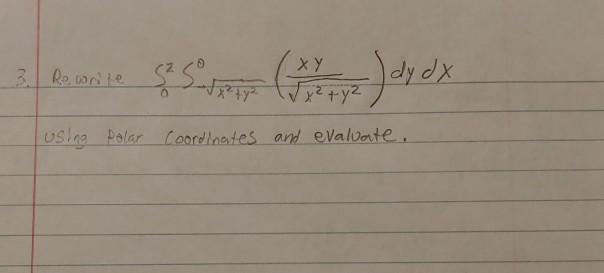 3. Rewrite ∫₀² ∫₋√(x²+y²)⁰ (xy / √(x²+y²)) dy dx
using Polar Coordinates and evaluate.